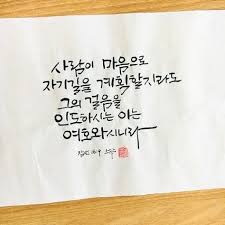 사람이 마음으로
자기길을 계획할지라도
그의 걸음을
인도하시는 이는
여호와시니라